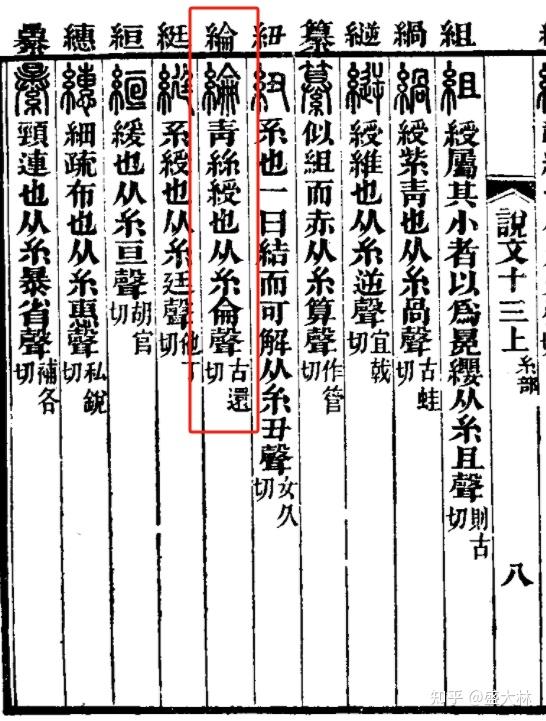 說文十三上 糸部 八
組 組 綬屬其小者以爲冕纓从糸且聲則古切
緺 緺 綬紫青也从糸咼聲古蛙切
縌 縌 綬維也从糸逆聲宜戟切
纂 纂 似組而赤从糸算聲作管切
紐 紐 系也一曰結而可解从糸丑聲女久切
綸 綸 青絲綬也从糸侖聲古還切
綎 綎 系綬也从糸廷聲他丁切
絙 絙 緩也从糸亘聲胡官切
繐 繐 細疏布也从糸惠聲私銳切
頸連也从糸暴省聲補各切
知乎 @盛大林